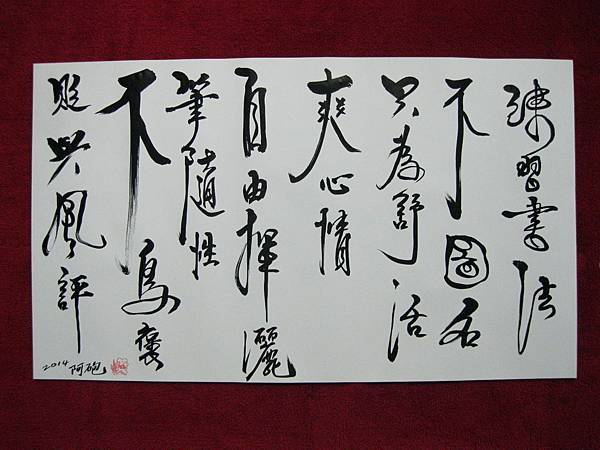 練習書法
不圖名
只為舒活
爽心情
自由揮灑
筆隨性
不褒
貶與風評
2014 阿砲